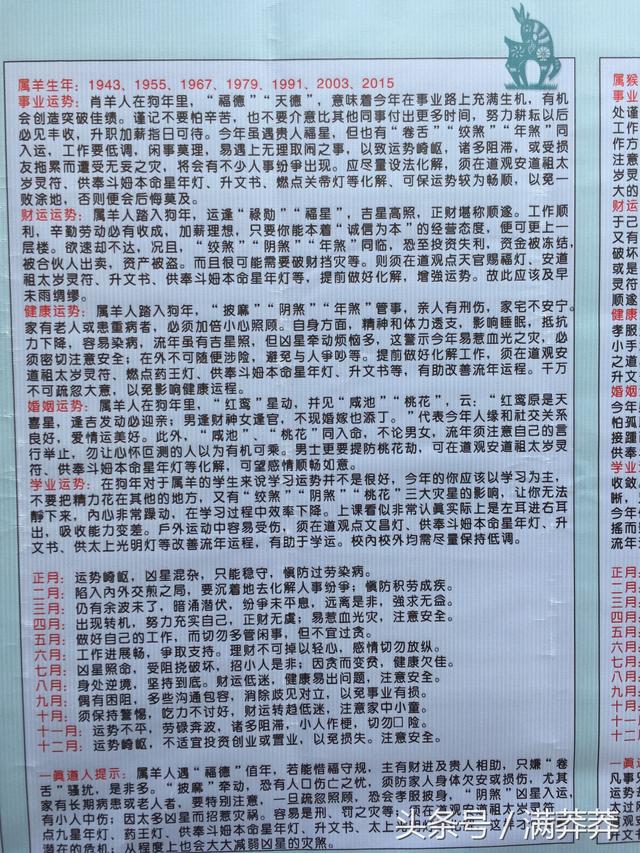 属羊生年：1943、1955、1967、1979、1991、2003、2015
事业运势：肖羊人在狗年里，“福德”“天德”，意味着今年在事业路上充满生机，有机
会创造突破佳绩。谨记不要怕辛苦，也不要介意比其他同事付出更多时间，努力耕耘以后
必见丰收，升职加薪指日可待。今年虽遇贵人福星，但也有“卷舌”“绞煞”“年煞”同
入运，工作要低调，闲事莫理，易遇上无理取闹之事，以致运势崎岖，诸多阻滞，或受损
友拖累而遭受无妄之灾，将会有不少人事纷争出现。应尽量设法化解，须在道观安道祖太
岁灵符、供奉斗姆本命星年灯、升文书、燃点关帝灯等化解、可保运势较为畅顺，以免一
败涂地，否则便会后悔莫及。
财运运势：属羊人踏入狗年，运逢“禄勋”“福星”，吉星高照，正财堪称顺遂。工作顺
利，辛勤劳动必有收成，加薪理想，只要你能本着“诚信为本”的经营态度，便可更上一
层楼。欲速却不达，况且，“绞煞”“阴煞”“年煞”同临，恐至投资失利，资金被冻结，
被合伙人出卖，资产被盗。而且很可能需要破财挡灾等。则须在道观点天官赐福灯、安道
祖太岁灵符、升文书、供奉斗姆本命星年灯等，提前做好化解，增強运势。故此应该及早
未雨绸缪。
健康运势：属羊人踏入狗年，“披麻”“阴煞”“年煞”管事，亲人有刑伤，家宅不安宁。
家有老人或患重病者，必须加倍小心照顾。自身方面，精神和体力透支，影响睡眠，抵抗
力下降，容易染病，流年虽有吉星照，但凶星牵动烦恼多，这警示今年易惹血光之灾，必
须密切注意安全；在外不可随便涉险，避免与人争吵等。提前做好化解工作，须在道观安
道祖太岁灵符、燃点药王灯、供奉斗姆本命星年灯、升文书等，有助改善流年运程。千万
不可疏忽大意，以免影响健康运程。
婚姻运势：属羊人在狗年里，“红鸾”星动，并见“咸池”“桃花”，云：“红鸾原是天
喜星，逢吉发动必迎亲；男逢财神女逢官，不现婚嫁也添丁。”代表今年人缘和社交关系
良好，爱情运美好。此外，“咸池”、“桃花”同入命，不论男女，流年须注意自己的言
行举止，勿让心怀叵测的人以为有机可乘。男士更要提防桃花劫，可在道观安道祖太岁灵
符、供奉斗姆本命星年灯等化解，可望感情顺畅如意。
学业运势：在狗年对于属羊的学生来说学习运势并不是很好，今年的你应该以学习为主，
不要把精力花在其他的地方，又有“绞煞”“阴煞”“桃花”三大灾星的影响，让你无法
靜下来，內心非常躁动，在学习过程中效率下降。上课看似非常认眞实际上是左耳进右耳
出，吸收能力变差。戶外运动中容易受伤，须在道观点文昌灯、供奉斗姆本命星年灯、升
文书、供太上光明灯等改善流年运程，有助于学运。校內校外均需尽量保持低调。
正月：运势崎岖，凶星混杂，只能稳守，慎防过劳染病。
二月：陷入內外交煎之局，要沉着地去化解人事纷爭；慎防积劳成疾。
三月：仍有余波未了，暗涌潜伏，纷爭未平息，远离是非，強求无益。
四月：出现转机，努力充实自己，正财无虞；易惹血光灾，注意安全。
五月：做好自己的工作，而切勿多管闲事，但不宜过贪。
六月：工作进展畅，争取支持。理财不可掉以轻心，感情切勿放纵。
七月：凶星照命，受阻挠破坏，招小人是非；因贪而变贫，健康欠佳。
八月：身处逆境，坚持到底。财运低迷，健康易出问题，注意安全。
九月：偶有困阻，多些沟通包容，消除歧见对立，以免事业有损。
十月：须保持警惕，吃力不讨好，财运转趋低迷，注意家中小童。
十一月：运势不平，劳碌奔波，诸多阻滞，小人作梗，切勿□险。
十二月：运势崎岖，不适宜投资创业或置业，以免损失。注意安全。
一眞道人提示：属羊人遇“福德”值年，若能惜福守规，主有财进及贵人相助，只嫌“卷
舌”骚扰，是非多。“披麻”牵动，恐有人口伤亡之忧，须防家人身体欠安或损伤，尤其
家有长期病患或老人者，要特别注意，一旦疏忽照顾，恐会孝服披身，“阴煞”凶星入运，
有小人中伤；因太多凶星而招惹灾祸。容易是刑、罚之灾等；可在道观安道祖太岁灵符、
点九星年灯、药王灯、供奉斗姆本命星年灯、升文书
潜在的危机；从程度上也会大大减弱凶星的灾煞。
头条号／满莽莽
属猴
事业
处谨
财运
健康
婚姻
学业